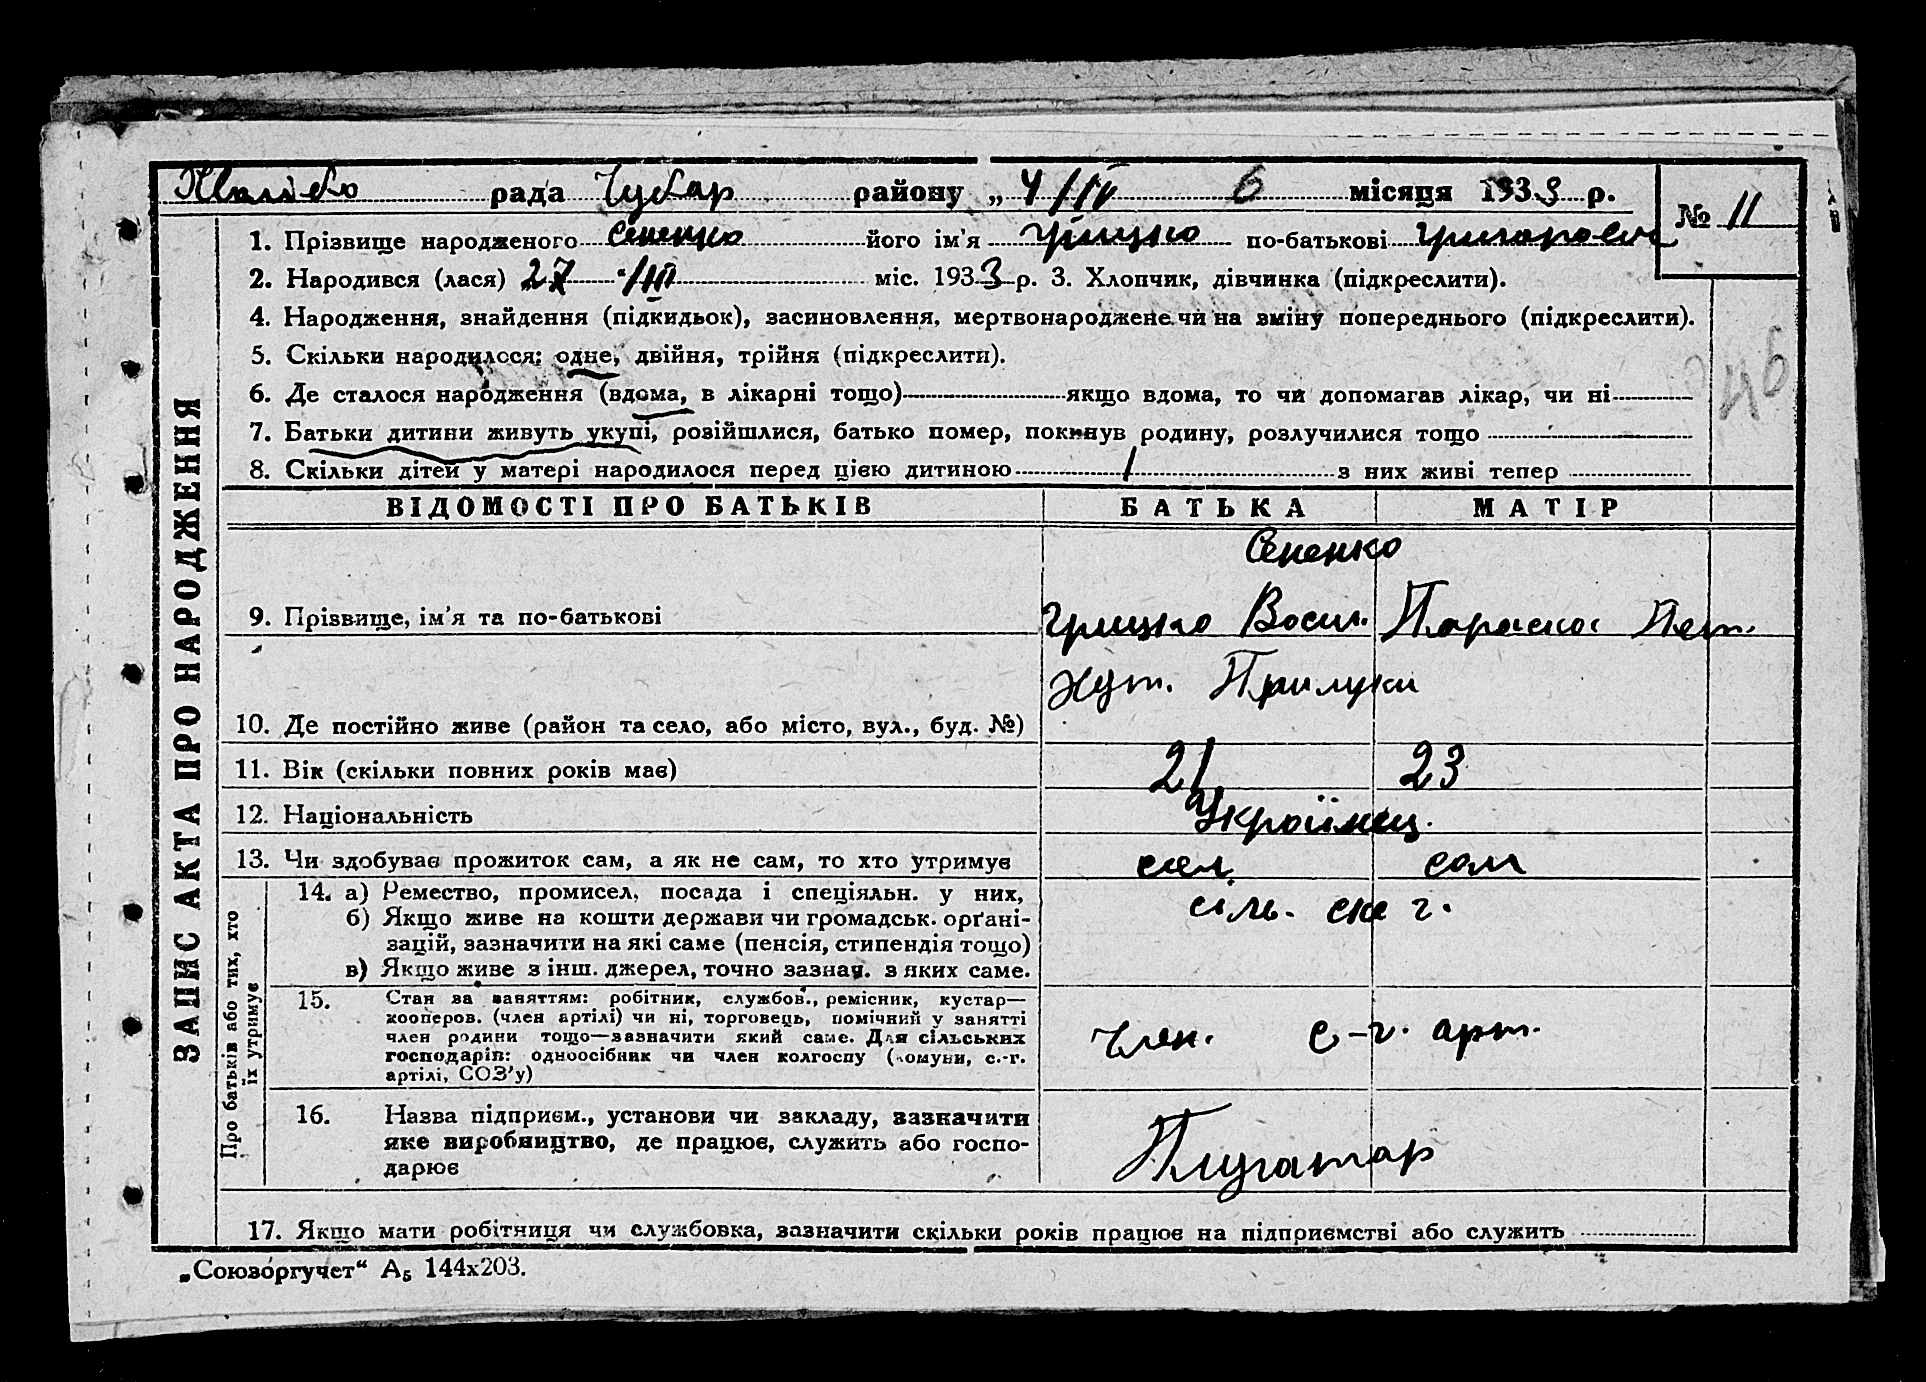 рада Чубар району „ 4/IV 6 місяця 1933 р.
№ 11
1. Прізвище народженого Сененко його ім'я Грицько по-батькові Григорович
2. Народився (лася) 27 /III міс. 1933 р. 3. Хлопчик, дівчинка (підкреслити).
4. Народження, знайдення (підкидьок), засиновлення, мертвонароджене чи на зміну попереднього (підкреслити).
5. Скільки народилося: одне, двійня, трійня (підкреслити).
6. Де сталося народження (вдома, в лікарні тощо) якщо вдома, то чи допомагав лікар, чи ні
7. Батьки дитини живуть укупі, розійшлися, батько помер, покинув родину, розлучилися тощо
8. Скільки дітей у матері народилося перед цією дитиною 1 з них живі тепер
246
ЗАПИС АКТА ПРО НАРОДЖЕННЯ
ВІДОМОСТІ ПРО БАТЬКІВ БАТЬКА МАТІР
Сененко
9. Прізвище, ім'я та по-батькові Грицько Васил. Параска Пет.
хут. Прилуки
10. Де постійно живе (район та село, або місто, вул., буд. №)
11. Вік (скільки повних років має) 21 23
12. Національність Україннец.
13. Чи здобуває прожиток сам, а як не сам, то хто утримує сам сам
Про батьків або тих, хто їх утримує
14. а) Ремество, промисел, посада і спеціяльн. у них, сіль. ске г.
б) Якщо живе на кошти держави чи громадськ. орґані-
зацій, зазначити на які саме (пенсія, стипендія тощо)
в) Якщо живе з інш. джерел, точно зазнач. з яких саме.
15. Стан за заняттям: робітник, службов., ремісник, кустар—
кооперов. (член артілі) чи ні, торговець, помічний у занятті
член родини тощо—зазначити який саме. Для сільських
господарів: одноосібник чи член колгоспу (комуни, с.-г.
артілі, СОЗ'у)
член. с-г. арт.
16. Назва підприєм., установи чи закладу, зазначити
яке виробництво, де працює, служить або госпо-
дарює
Плугатар
17. Якщо мати робітниця чи службовка, зазначити скільки років працює на підприємстві або служить
„Союзоргучет“ А₅ 144x203.